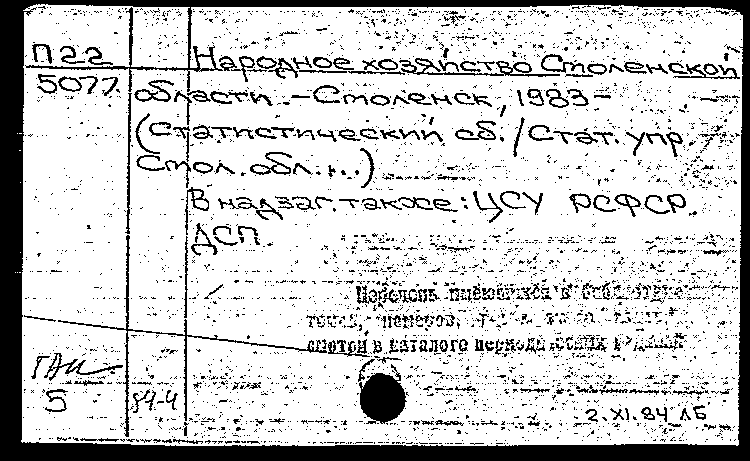 П22
5077
Народное хозяйство Смоленской
области. – Смоленск, 1983 –
(Статистический сб. / Стат. упр.
Смол. обл. ...)
В надзаг. также: ЦСУ РСФСР.
ДСП.
Перечень имеющихся в библиотеке
томов, номеров,
смотри в каталоге периодических изданий
5
84-4
2.XI.84 ЛБ